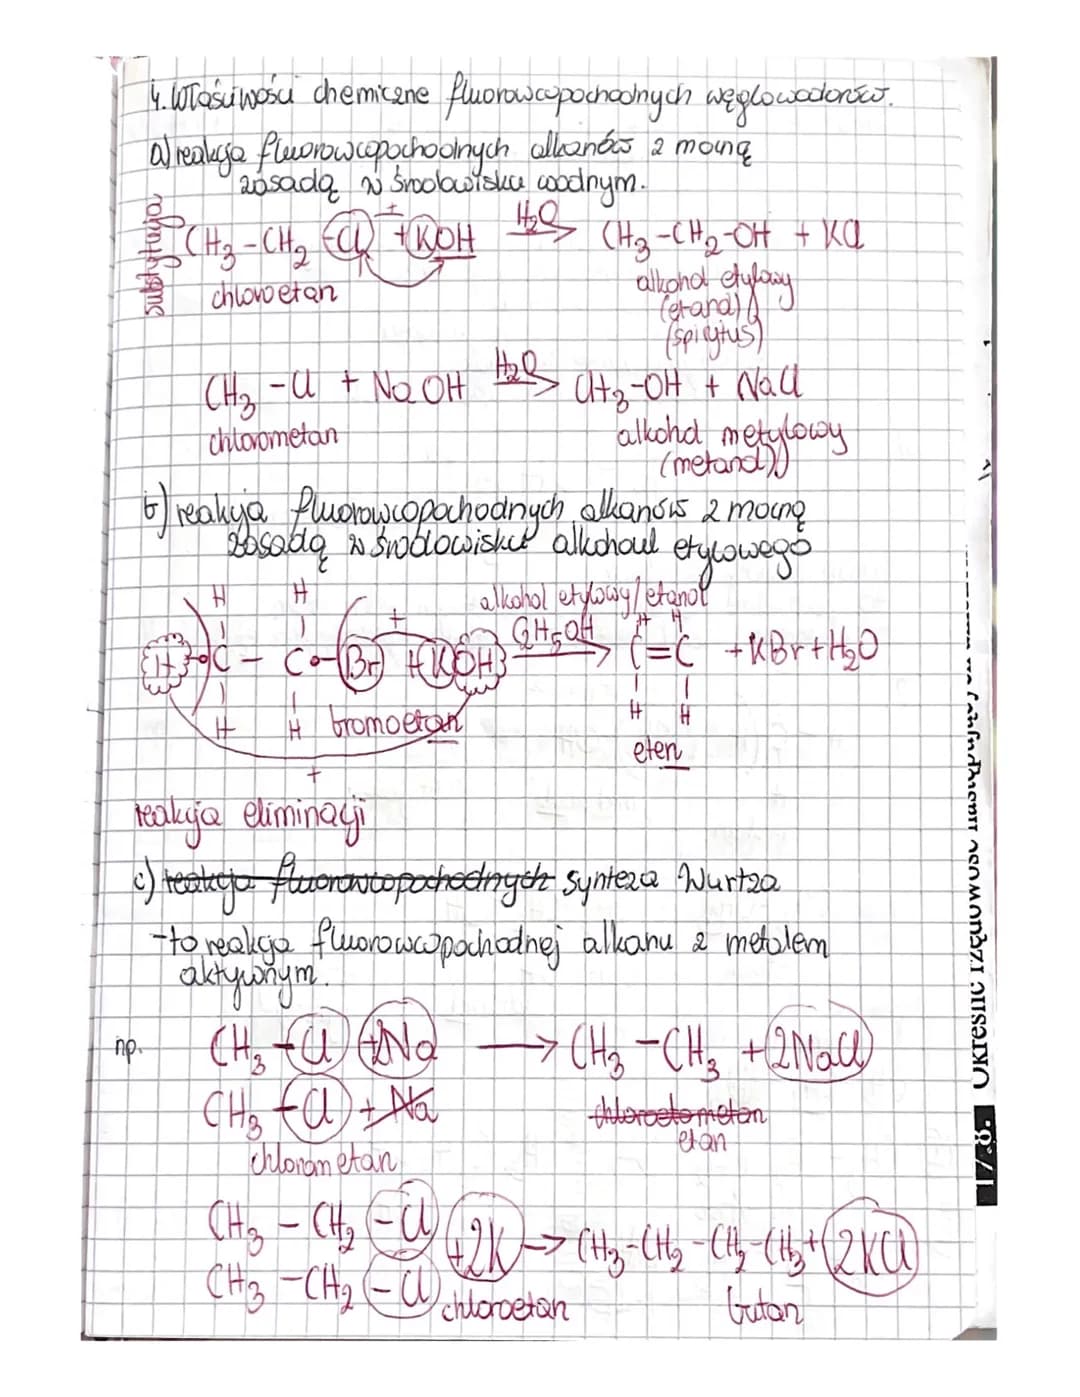 4. Właściwości chemiczne fluorowcopochodnych węglowodorów.
a) reakcja fluorowcopochodnych alkanów z mocną
zasadą w środowisku wodnym.
substytucja
CH₃-CH₂-Cl + KOH H₂O→ CH₃-CH₂-OH + KCl
chloroetan
alkohol etylowy
(etanol)
(spirytus)
CH₃-Cl + NaOH H₂O→ CH₃-OH + NaCl
chlorometan
alkohol metylowy
(metanol)
b) reakcja fluorowcopochodnych alkanów z mocną
zasadą w środowisku alkoholu etylowego
alkohol etylowy/etanol
H H H H
H-C-C-Br + KOH C₂H₅OH→ C=C + KBr + H₂O
H H bromoetan H H
+
eten
reakcja eliminacji
c) reakcja fluorowcopochodnych synteza Wurtza
-to reakcja fluorowcopochodnej alkanu z metalem
aktywnym.
np. CH₃-Cl +2Na → CH₃-CH₃ + 2NaCl
CH₃-Cl + Na
etan
chlorometan
CH₃-CH₂-Cl +2K → CH₃-CH₂-CH₂-CH₃+2KCl
CH₃-CH₂-Cl
chloroetan butan
17.8. Określić